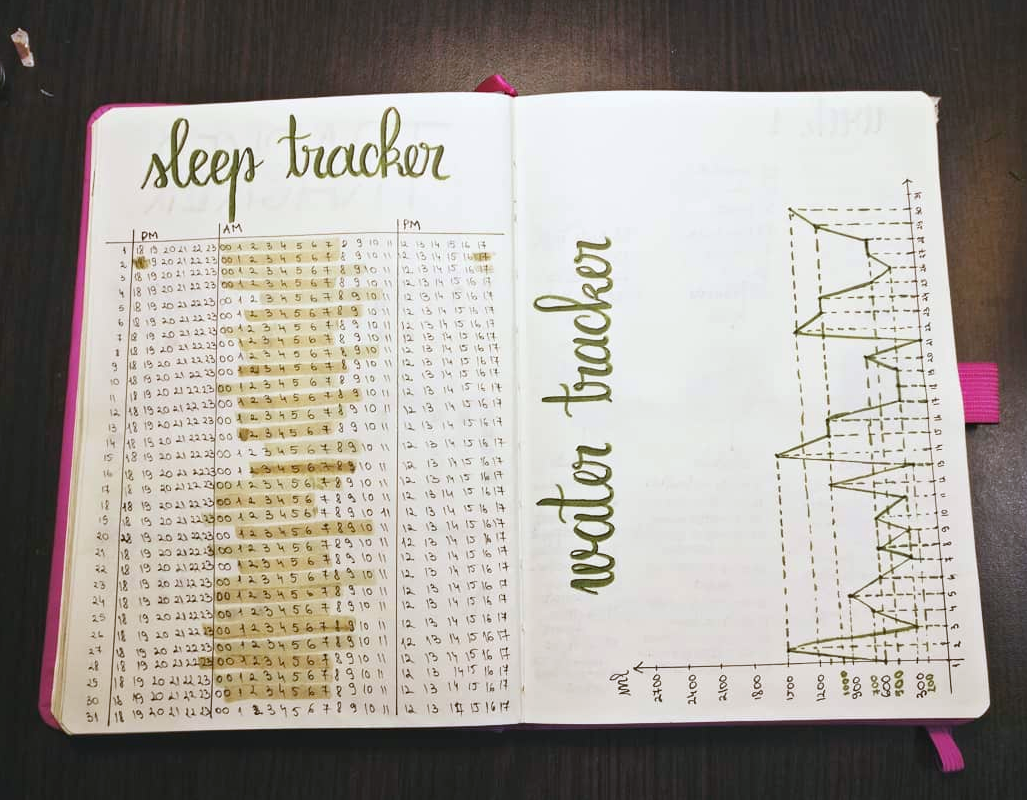 sleep tracker
PM AM PM
1 18 19 20 21 22 23 00 1 2 3 4 5 6 7 8 9 10 11 12 13 14 15 16 17
2 19 20 21 22 23 00 1 2 3 4 5 6 7 8 9 10 11 12 13 14 15 16 17
3 18 19 20 21 22 23 00 1 2 3 4 5 6 7 8 9 10 11 12 13 14 15 16 17
4 18 19 20 21 22 23 00 1 2 3 4 5 6 7 8 9 10 11 12 13 14 15 16 17
5 18 19 20 21 22 23 00 1 2 3 4 5 6 7 8 9 10 11 12 13 14 15 16 17
6 18 19 20 21 22 23 00 1 2 3 4 5 6 7 8 9 10 11 12 13 14 15 16 17
7 18 19 20 21 22 23 00 1 2 3 4 5 6 7 8 9 10 11 12 13 14 15 16 17
8 18 19 20 21 22 23 00 1 2 3 4 5 6 7 8 9 10 11 12 13 14 15 16 17
9 18 19 20 21 22 23 00 1 2 3 4 5 6 7 8 9 10 11 12 13 14 15 16 17
10 18 19 20 21 22 23 00 1 2 3 4 5 6 7 8 9 10 11 12 13 14 15 16 17
11 18 19 20 21 22 23 00 1 2 3 4 5 6 7 8 9 10 11 12 13 14 15 16 17
12 18 19 20 21 22 23 00 1 2 3 4 5 6 7 8 9 10 11 12 13 14 15 16 17
13 18 19 20 21 22 23 00 1 2 3 4 5 6 7 8 9 10 11 12 13 14 15 16 17
14 18 19 20 21 22 23 00 2 3 4 5 6 7 8 9 10 11 12 13 14 15 16 17
15 18 19 20 21 22 23 00 1 2 3 4 5 6 7 8 9 10 11 12 13 14 15 16 17
16 18 19 20 21 22 23 00 1 2 3 4 5 6 7 8 9 10 11 12 13 14 15 16 17
17 18 19 20 21 22 23 00 1 2 3 4 5 6 7 8 9 10 11 12 13 14 15 16 17
18 18 19 20 21 22 23 00 1 2 3 4 5 6 7 8 9 10 11 12 13 14 15 16 17
19 18 19 20 21 22 23 00 1 2 3 4 5 6 7 8 9 10 11 12 13 14 15 16 17
20 19 20 21 22 23 00 1 2 3 4 5 6 7 8 9 10 11 12 13 14 15 16 17
21 18 19 20 21 22 23 00 1 2 3 4 5 6 7 8 9 10 11 12 13 14 15 16 17
22 18 19 20 21 22 23 00 1 2 3 4 5 6 7 8 9 10 11 12 13 14 15 16 17
23 18 19 20 21 22 23 00 1 2 3 4 5 6 7 8 9 10 11 12 13 14 15 16 17
24 18 19 20 21 22 23 00 1 2 3 4 5 6 7 8 9 10 11 12 13 14 15 16 17
25 18 19 20 21 22 23 00 1 2 3 4 5 6 7 8 9 10 11 12 13 14 15 16 17
26 18 19 20 21 22 23 00 1 2 3 4 5 6 7 8 9 10 11 12 13 14 15 16 17
27 18 19 20 21 22 23 00 1 2 3 4 5 6 7 8 9 10 11 12 13 14 15 16 17
28 18 19 20 21 22 23 00 1 2 3 4 5 6 7 8 9 10 11 12 13 14 15 16 17
18 19 20 21 22 23 00 1 2 3 4 5 6 7 8 9 10 11 12 13 14 15 16 17
30 19 20 21 22 23 00 1 2 3 4 5 6 7 8 9 10 11 12 13 14 15 16 17
31 18 19 20 21 22 23 00 1 2 3 4 5 6 7 8 9 10 11 12 13 14 15 16 17
water tracker
ml
2700
2400
2100
1800
1500
1200
1000
900
700
600
500
300
200
1 2 3 4 5 6 7 8 9 10 11 13 14 15 17 20 21 22 23 24 26 27 28 29 30 31